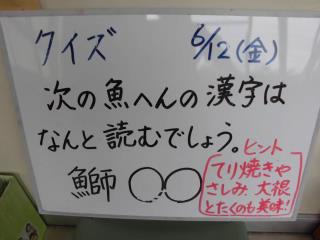 クイズ 6/12(金)
次の魚へんの漢字は
なんと読むでしょう。
鰤師 ○○
ヒント
てり焼きや
さしみ 大根
とたくのも美味!